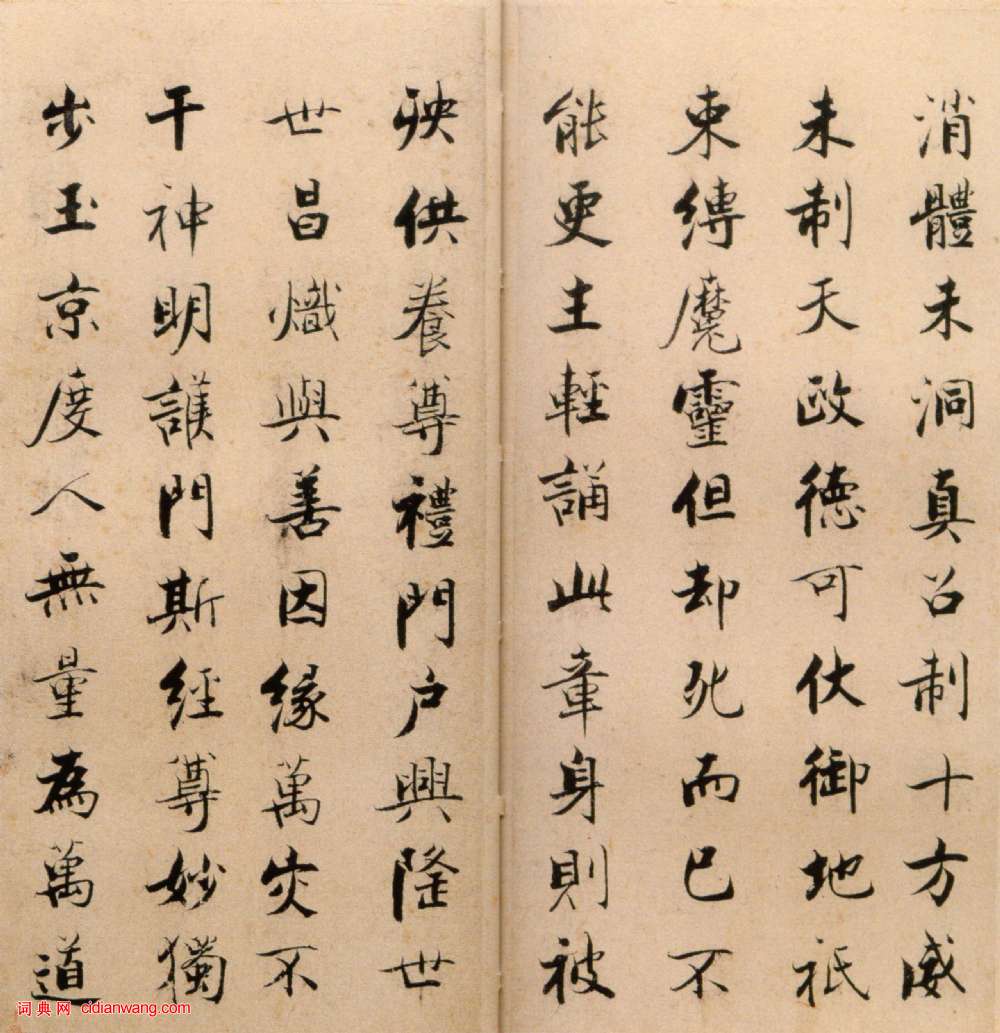 消體未洞真召制十方威
未制天政德可伏御地祇
束縛魔靈但却死而已不
能更生輕誦此章身則被
殃供養尊禮門户興隆世
世昌熾與善因緣萬灾不
干神明護門斯經尊妙獨
步玉京度人無量為萬道
词典网 cidianwang.com